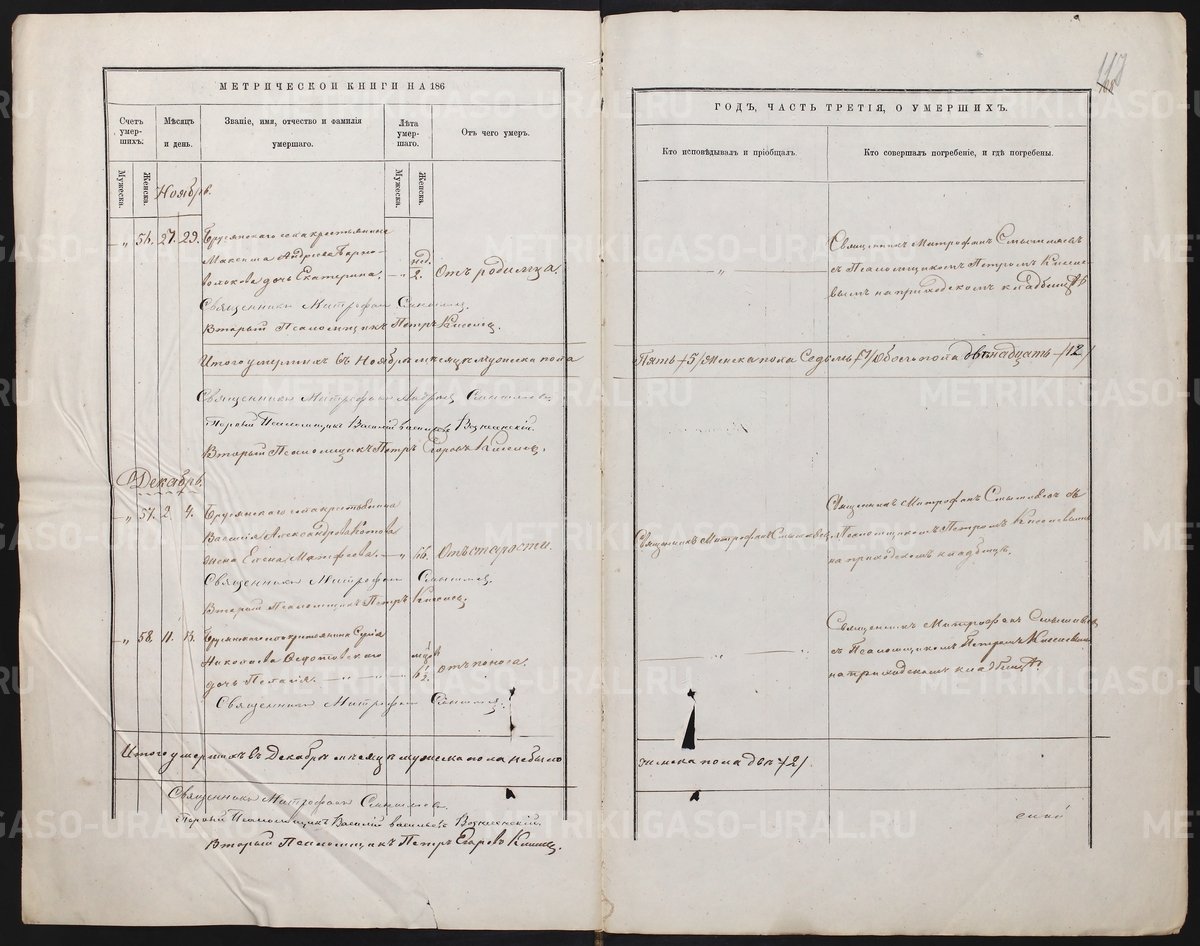 МЕТРИЧЕСКОЙ КНИГИ НА 186
Счетъ умер-шихъ.
Мѣсяцъ и день.
Званіе, имя, отчество и фамилія умершаго.
Лѣта умер-шаго.
Отъ чего умеръ.
Мужеска.
Женска.
Мужеска.
Женска.
Ноябрь.
" 56. 27. 29. Брусянского села крестьянина
Максима Андреева
дочь Екатерина. — " нед. 2. Отъ родимца.
Священникъ Митрофанъ
Вторый Псаломщикъ Петръ Киселев.
Итого умершихъ въ Ноябрѣ мѣсяцѣ мужеска пола
Священникъ Митрофанъ
Первый Псаломщикъ Василій Васильевъ Вознесенскій.
Вторый Псаломщикъ Петръ Егоровъ Киселев.
Декабрь.
" 57. 2. 4. Брусянского села крестьянина
Василія Александрова
жена Елена Матфеева. — " 66. Отъ старости.
Священникъ Митрофанъ
Вторый Псаломщикъ Петръ Киселев.
" 58. 11. 13. Брусянского села крестьянина
Николаева Федотовского
дочь Пелагія. — " — отъ поноса.
Священникъ Митрофанъ
Итого умершихъ въ Декабрѣ мѣсяцѣ мужеска пола небыло
Священникъ Митрофанъ
Первый Псаломщикъ Василій Васильевъ Вознесенскій.
Вторый Псаломщикъ Петръ Егоровъ Киселев.
ГОДЪ, ЧАСТЬ ТРЕТІЯ, О УМЕРШИХЪ.
Кто исповѣдывалъ и пріобщалъ.
Кто совершалъ погребеніе, и гдѣ погребены.
Священникъ Митрофанъ
съ Псаломщикомъ Петромъ Киселе-
вымъ на приходскомъ кладбищѣ
Пять /5/ Женска пола Седьмь /7/ Обоего пола двѣнадцать /12/
Священникъ Митрофанъ
Священникъ Митрофанъ съ
Псаломщикомъ Петромъ Киселевымъ
на приходскомъ кладбищѣ.
Священникъ Митрофанъ
съ Псаломщикомъ Петромъ Киселевымъ
на приходскомъ кладбищѣ.
женска пола двѣ /2/.
METRIKI.GASO-URAL.RU